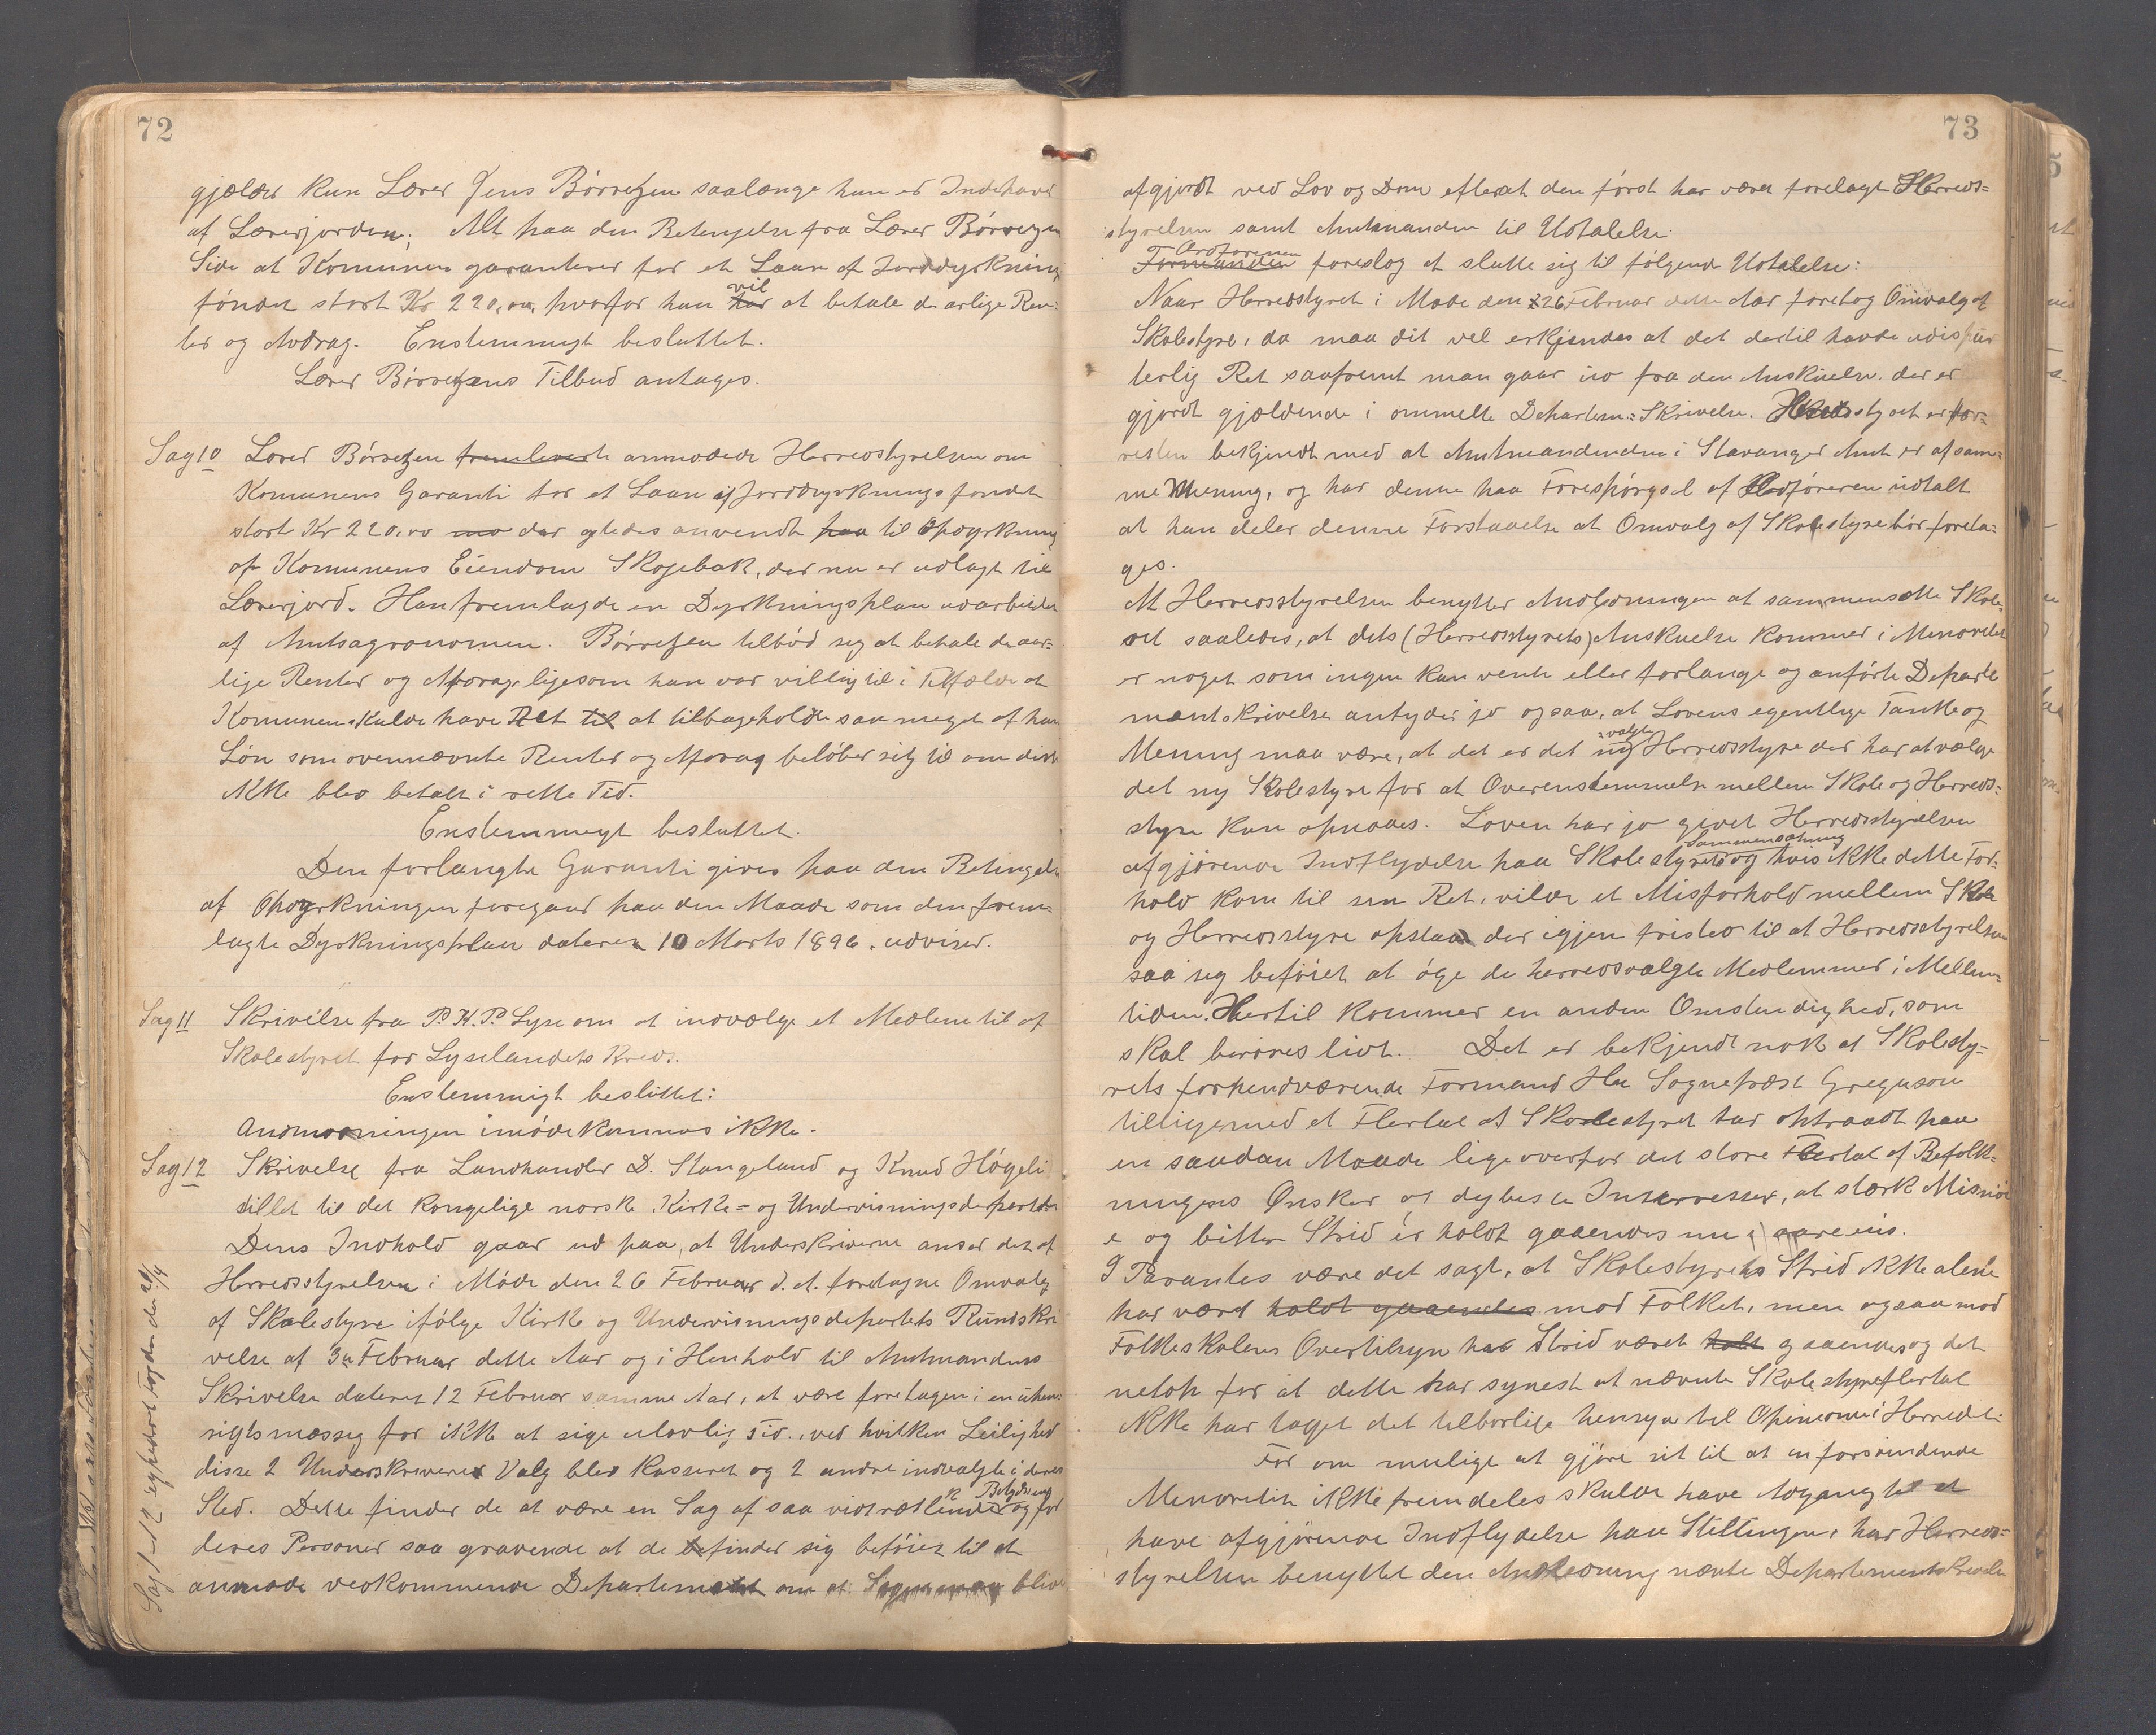 72
gjælder kun Lærer Jens Børretzen saalænge han er Indehaver
af Lærerjorden; Alt paa den Betingelse fra Lærer Børretzen
Side at Komunen garanterer for et Laan af Jorddyrknings
fondet stort Kr 220,00, hvorfor han vil at betale de arlige Ren-
ter og Avdrag. Enstemmigt besluttet.
Lærer Børretzens Tilbud antages.
Sag 10 Lærer Børretzen fremleverte anmodede Herredstyrelsen om
Komunens Garanti for et Laan af Jorddyrkningsfondet
stort Kr 220,00 der agtedes anvendt paa til Opdyrkning
af Komunens Eiendom Skogebak, der nu er udlagt til
Lærerjord. Han fremlagde en Dyrkningsplan udarbeidet
af Amtsagronomen. Børretzen tilbød seg at betale de aar-
lige Renter og Afdrag ligesom han var villig til i Tilfælde at
Komunen skulde have Ret til at tilbageholde saa meget af hans
Løn som ovennævnte Renter og Afdrag beløber sig til om disse
ikke blev betalt i rette Tid.
Enstemmigt besluttet.
Den forlangte Garanti gives paa den Betingelse
af Opdyrkningen foregaar paa den Maade som den frem-
lagte Dyrkningsplan dateret 10 Marts 1896. udviser.
Sag 11 Skrivelse fra P. H. P. Lyse om at indvælge et Medlem til af
Skolestyret for Lyselandets Kreds.
Enstemmigt besluttet:
Andmodningen imødekommes ikke.
Sag 12 Skrivelse fra Landhandler D. Stangeland og Knud Høgeli
stillet til det kongelige norske Kirke- og Undervisningsdepartem
Dens Indhold gaar ud paa, at Underskriverne anser det af
Herredsstyrelsen i Møde den 26 Februar d. A. foretagne Omvalg
af Skolestyre ifølge Kirke og Undervisningsdepartets Rundskri
velse af 3 Februar dette Aar og i Henhold til Amtmandens
Skrivelse dateret 12 Februar samme Aar, at være foretagen i en uhen-
sigtsmæssig for ikke at sige ulovlig Tid., ved hvilken Leilighed
disse 2 Underskriveres Valg blev Kasseret og 2 andre indvalgte i deres
Sted. Dette finder de at være en Sag af saa vidtrækkende Betydning og for
deres Personer saa gravende at de befinder sig beføiet til at
anmode vedkommende Departement om at blive
Sag 1-12 Fogden den 20/4
73
afgjordt ved Lov og Dom efterat den først har været forelagt Herreds-
styrelsen samt Amtmanden til Udtalelse.
Formanden Ordføreren foreslog at slutte sig til følgende Udtalelse:
Naar Herredstyret i Møde den 26 Februar dette Aar foretog Omvalg af
Skolestyre, da maa det vel erkjendes at det dertil havde udispu-
terlig Ret saafremt man gaar ud fra den Anskuelse der er
gjordt gjældende i ommelte Departem.-Skrivelse. Herredsstyret er for-
resten bekjendt med at Amtmanden i Stavanger Amt er af sam-
me Mening, og har denne paa Forespørgsel af Ordføreren udtalt
at han deler denne Forstaaelse at Omvalg af Skolestyre bør foreta-
ges.
At Herredsstyrelsen benytter Andledningen at sammensætte Skole-
ret saaledes, at dets (Herredsstyrets) Anskuelse kommer i Menoritet
er noget som ingen kan vente eller forlange og anførte Departe
mentskrivelse antyder jo ogsaa, at Lovens egentlige Tanke og
Mening maa være, at det er det ny valgte Herredsstyre der har at vælge
det ny Skolestyre for at Overenstemmelse mellem Skole og Herreds-
styre kan opnaaes. Loven har jo givet Herredsstyrelsen
afgjørende Indflydelse paa Skolestyrets Sammensætning og hvis ikke dette For-
hold kom til sin Ret, vilde et Misforhold mellem Skole
og Herredsstyre opstaa der igjen fristed til at Herredsstyrelsen
saa seg beføiet at øge de herredsvalgte Medlemmer i Mellem-
tiden. Hertil kommer en anden Omstendighed, som
skal berøres lidt. Det er bekjendt nok at Skolesty-
rets forhenværende Formand Hr Sogneprest Gregusson
tilligemed et Flertal af Skolestyret har optraadt paa
en saadan Maade ligeoverfor det store Flertal af Befolk-
ningens Ønsker og dybeste Interresser, at stærk Misnøi
e og bitter Strid er holdt gaaendes nu i aarevis.
I Parantes være det sagt, at Skolestyrets Strid ikke alene
har været holdt gaaendes mod Folket, men ogsaa mod
Folkeskolens Overtilsyn har Strid været holdt gaaendes og det
netop for at dette har synest at nævnte Skolestyreflertal
ikke har taget det tilbørlige hensyn til Opinionen i Herredet.
For om mulige at gjøre sit til at en forsvindende
Menoritet ikke fremdeles skulde have Adgang til at
have afgjørende Indflydelse paa Stillingen, har Herreds-
styrelsen benyttet den Andledning nævnte Departementskrivelse